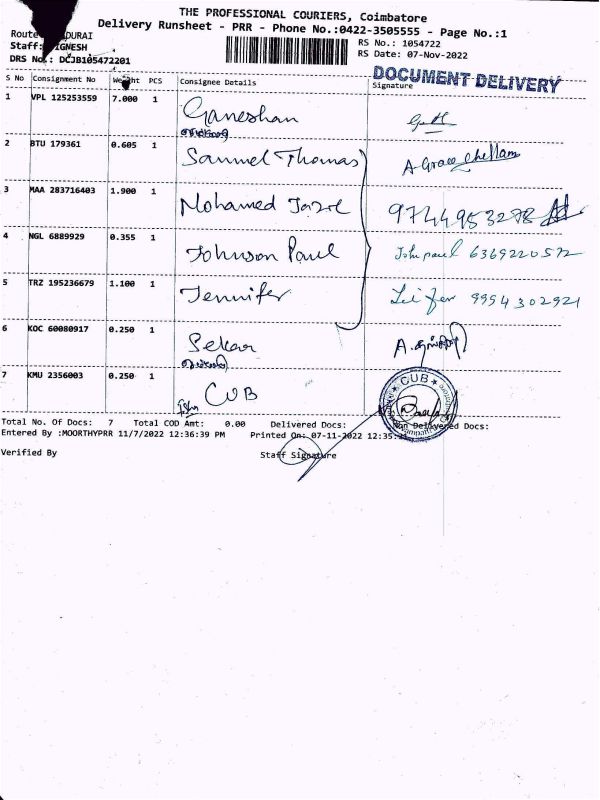 THE PROFESSIONAL COURIERS, Coimbatore
Delivery Runsheet - PRR - Phone No.:0422-3505555 - Page No.:1
Route DURAI
Staff: IGNESH
DRS No.: DCJB105472201
RS No.: 1054722
RS Date: 07-Nov-2022
DOCUMENT DELIVERY
S No Consignment No Weight PCS Consignee Details Signature
1 VPL 125253559 7.000 1 Ganeshan
2 BTU 179361 0.605 1 Samuel Thomas A. Grace chellam
3 MAA 283716403 1.900 1 Mohamed 9744953278
4 NGL 6889929 0.355 1 Johnson Paul John paul 6369220572
5 TRZ 195236679 1.100 1 Jennifer 9994302921
6 KOC 60080917 0.250 1 Sekar
7 KMU 2356003 0.250 1 CUB
CUB
Total No. Of Docs: 7 Total COD Amt: 0.00 Delivered Docs: Non Delivered Docs:
Entered By :MOORTHYPRR 11/7/2022 12:36:39 PM Printed On: 07-11-2022 12:35:
Verified By Staff Signature